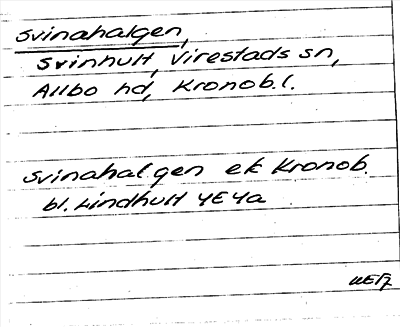 Svinahalgen,
Svinhult, Virestads sn,
Allbo hd, Kronob.l.
Svinahalgen ek Kronob.
bl. Lindhult 4E4a